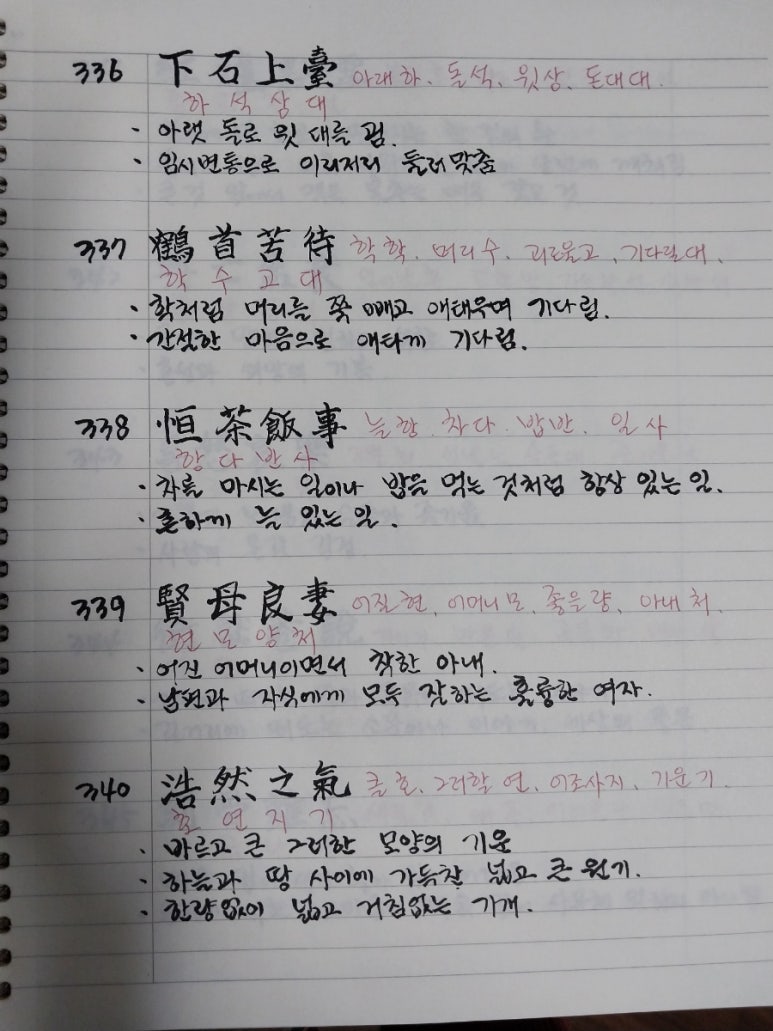 336 下石上臺 아래하. 돌석, 윗상, 돈대대.
하석상대
· 아랫 돌로 윗 대를 굄.
· 임시변통으로 이리저리 둘러맞춤
337 鶴首苦待 학학. 머리수. 괴로울고, 기다릴대.
학수고대
· 학처럼 머리를 쭉 빼고 애태우며 기다림.
· 간절한 마음으로 애타게 기다림.
338 恒茶飯事 늘항. 차다. 밥반. 일사
항다반사
· 차를 마시는 일이나 밥을 먹는 것처럼 항상 있는 일.
· 흔하게 늘 있는 일.
339 賢母良妻 어질현, 어머니모, 좋을량, 아내처.
현모양처
· 어진 어머니이면서 착한 아내.
· 남편과 자식에게 모두 잘하는 훌륭한 여자.
340 浩然之氣 클호, 그러할연, 어조사지, 기운기.
호연지기
· 바르고 큰 그러한 모양의 기운
· 하늘과 땅 사이에 가득찬 넓고 큰 원기.
· 한량없이 넓고 거침없는 기개.